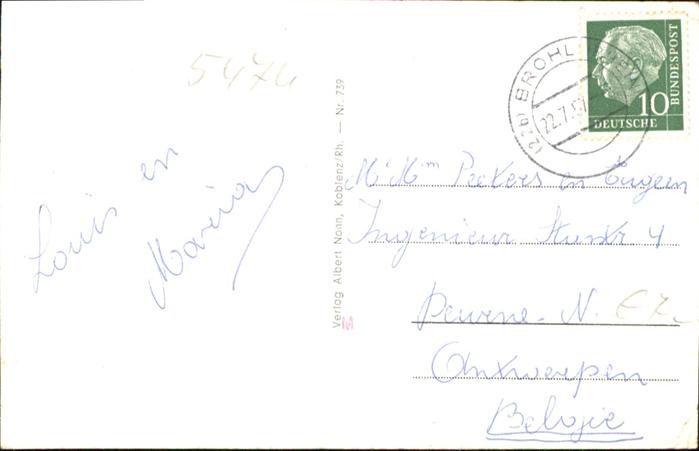 5474
Louis en
Maria
Verlag Albert Nonn, Koblenz/Rh. — Nr. 739
DEUTSCHE BUNDESPOST
10
(22b) BROHL
22.7.57
Mr Mm Peeters en Eugeen
Ingenieur 4
Deurne-N.
Antwerpen
Belgie